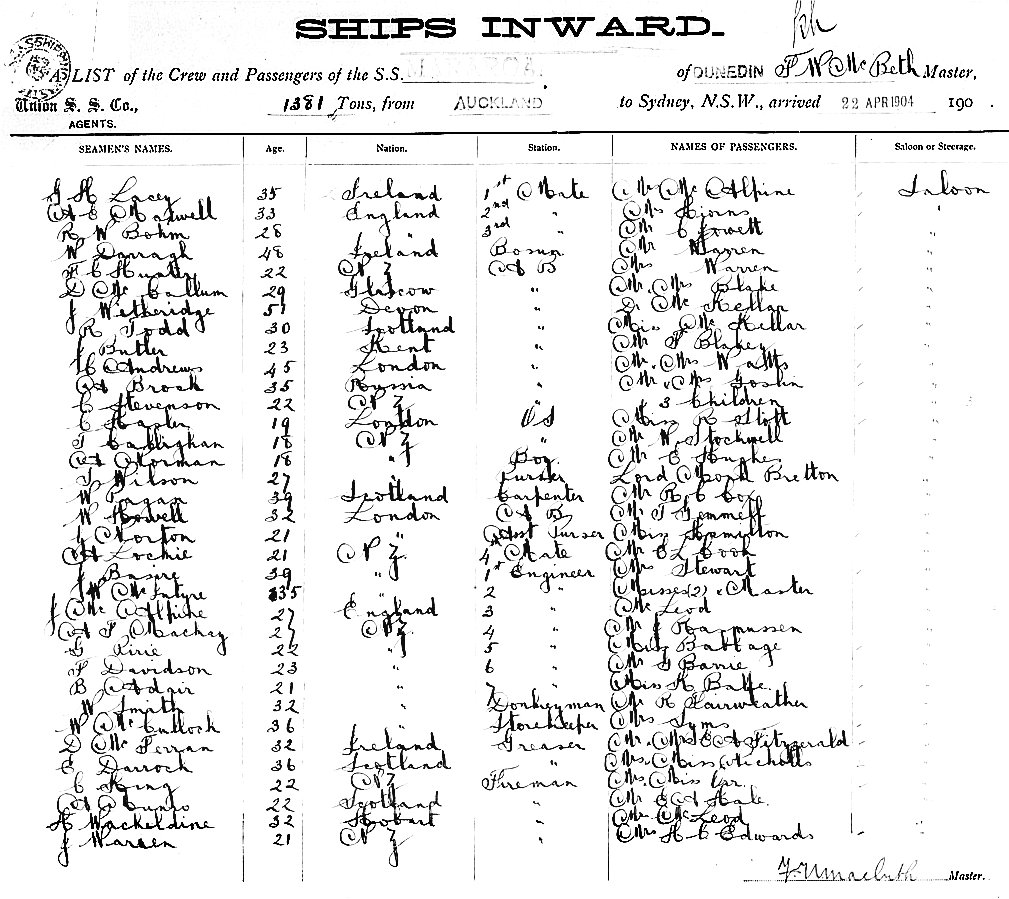 SHIPS INWARD.
A LIST of the Crew and Passengers of the S.S. of DUNEDIN F W McBeth Master,
Union S. S. Co., 1381 Tons, from AUCKLAND to Sydney, N.S.W., arrived 22 APR 1904 190 .
AGENTS.
SEAMEN'S NAMES. Age. Nation. Station. NAMES OF PASSENGERS. Saloon or Steerage.
H Lacey 35 Ireland 1st Mate Mr McAlpine Saloon
A E Maxwell 33 England 2nd " Mrs "
R W Bohm 28 " 3rd " Mr C "
W Darragh 48 Ireland Bosun Mr Warren "
22 N Z A B Mrs Warren "
D McCallum 29 Glascow " Mr. Mrs Blake "
J Wetheridge 51 Devon " Dr McKellar "
R Todd 30 Scotland " Miss McKellar "
J Butler 23 Kent " Mr Blakey "
C Andrews 45 London " Mr. Mrs Watts "
A Brock 35 Russia " Mr. Mrs Goslin "
C Stevenson 22 N Z " 3 Children "
C 19 London O S Miss R "
Callighan 18 N Z " Mr W Stockwell "
A Norman 18 " Boy Mr E Hughes "
Wilson 27 " Purser Lord Monk Bretton "
W 39 Scotland Carpenter Mr R C Cox "
W Howell 32 London A B Gemmell "
J Norton 21 " Asst Purser Miss Hamilton "
A Lockie 21 N Z 4 Mate Mr E L Cook "
J Basire 39 " 1st Engineer Mrs Stewart "
W McIntyre 35 2 " Misses (2) & Master "
J McAlpine 27 England 3 " McLeod "
A F Mackay 27 N Z 4 " Mr J Rasmussen "
G Pirie 22 " 5 " Babbage "
F Davidson 23 " 6 " Mr Barrie "
B Adair 21 " 7 " Miss K "
W Smith 32 " Donkeyman Mr R Fairweather "
W McCullock 36 " Storekeeper Mrs Syms "
D McFerran 32 Ireland Greaser Mr. Mrs E A Fitzgerald "
E Darroch 36 Scotland " Mrs. Miss Nicholls "
C King 22 N Z Fireman Mrs. Miss "
A Munro 22 Scotland " Mr E A Hale "
H Wackeldine 32 Hobart " Mr McLeod "
J Warren 21 N Z " Mrs H C Edwards "
Master.